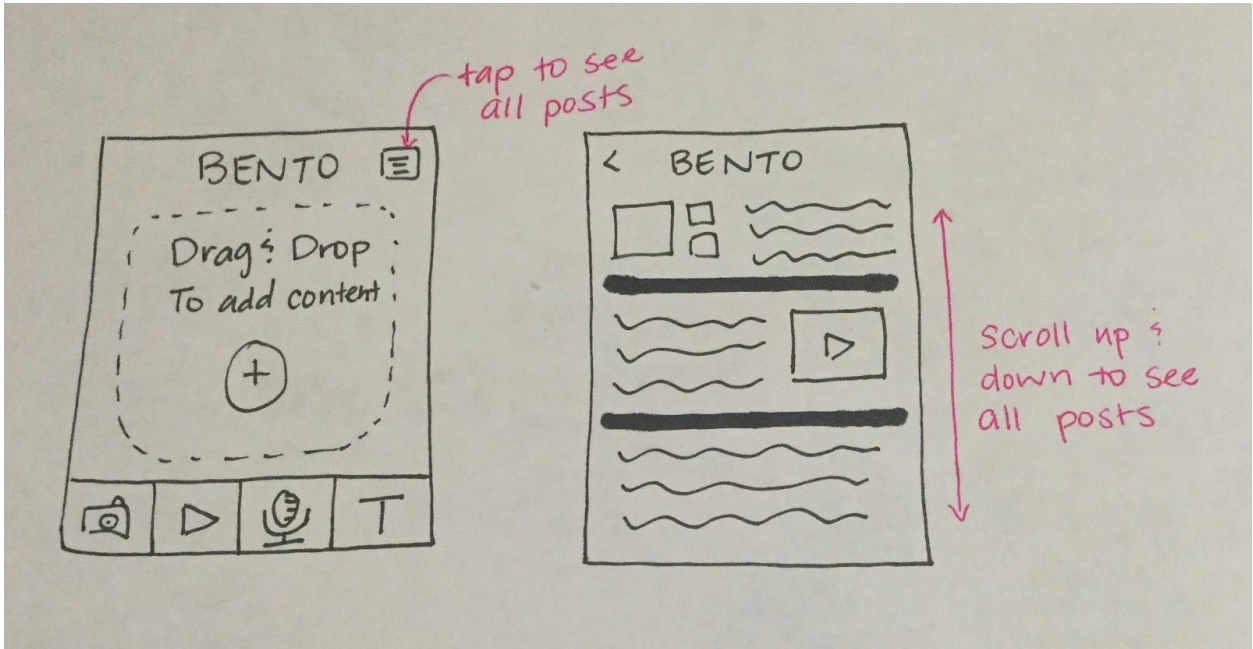 tap to see
all posts
BENTO
Drag & Drop
To add content
+
T
< BENTO
scroll up &
down to see
all posts